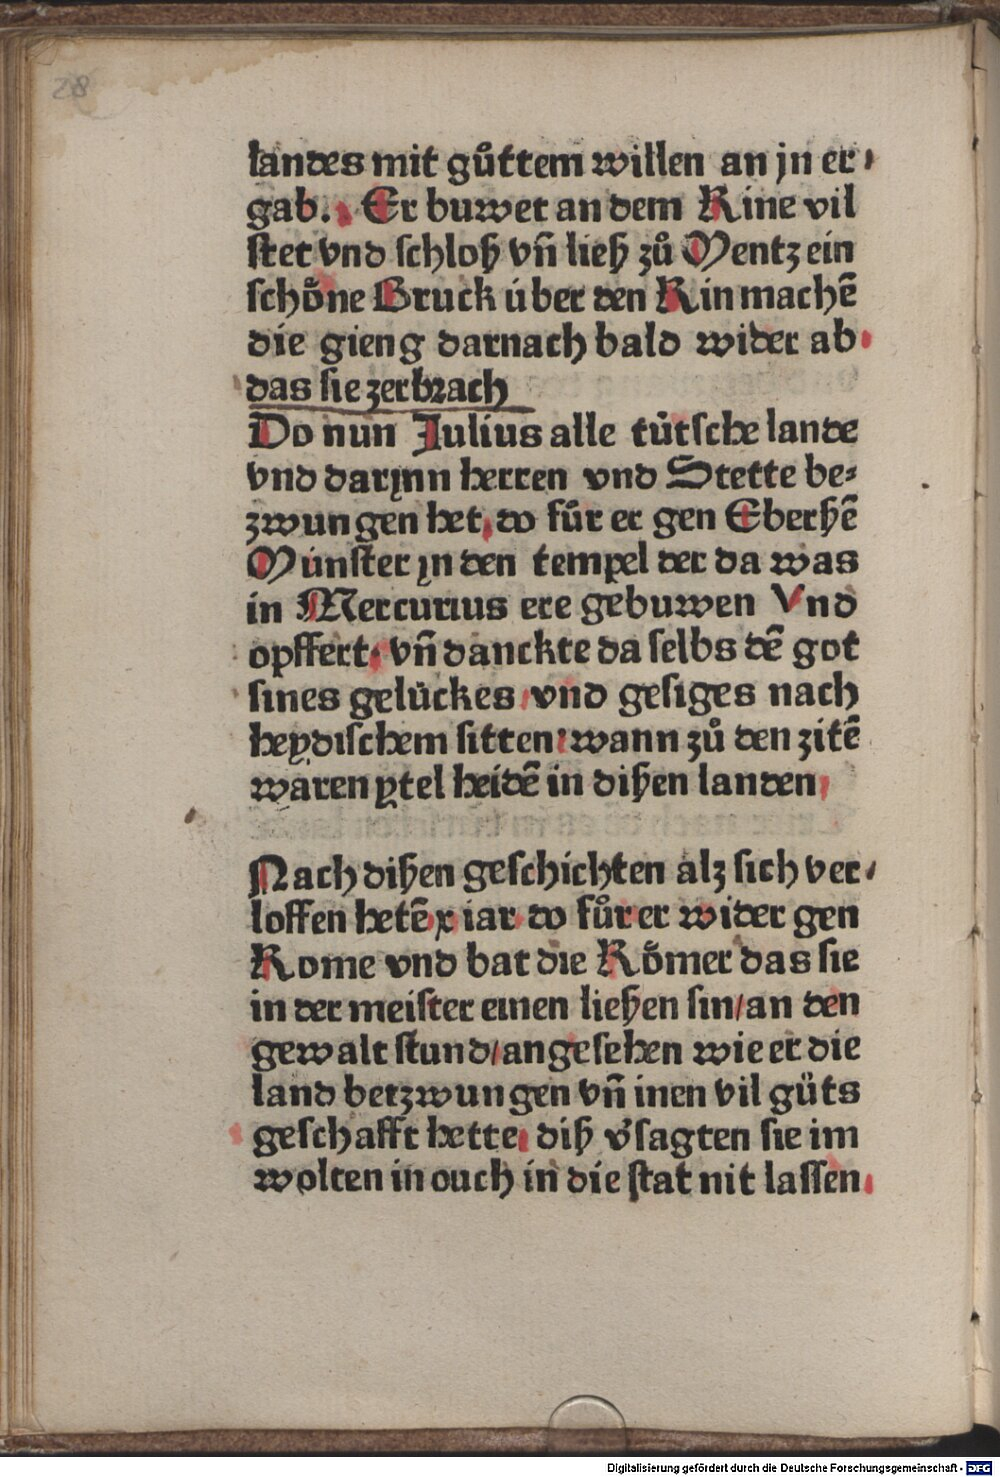 28
landes mit gůttem willen an jn er/
gab. Er buwet an dem Rine vil
stet vnd schloß vñ ließ zů Mentz ein
schőne Bruck über den Rin machē
die gieng darnach bald wider ab
das sie zerbrach
Do nun Julius alle tütsche lande
vnd darynn herren vnd Stette be⸗
zwungen het, do fůr er gen Eberßē
Münster yn den tempel der da was
in Mercurius ere gebuwen Vnd
opffert. vñ danckte da selbs dē got
sines gelückes vnd gesiges nach
heydischem sitten: wann zů den zitē
waren ytel heidē in dißen landen
Nach dißen geschichten alz sich ver/
loffen hetē x iar do fůr er wider gen
Rome vnd bat die Rőmer das sie
in der meister einen ließen sin/an den
gewalt stund/angesehen wie er die
land betzwungen vñ inen vil gůts
geschafft hette. diß v̕sagten sie im
wolten in ouch in die stat nit lassen
Digitalisierung gefördert durch die Deutsche Forschungsgemeinschaft - DFG